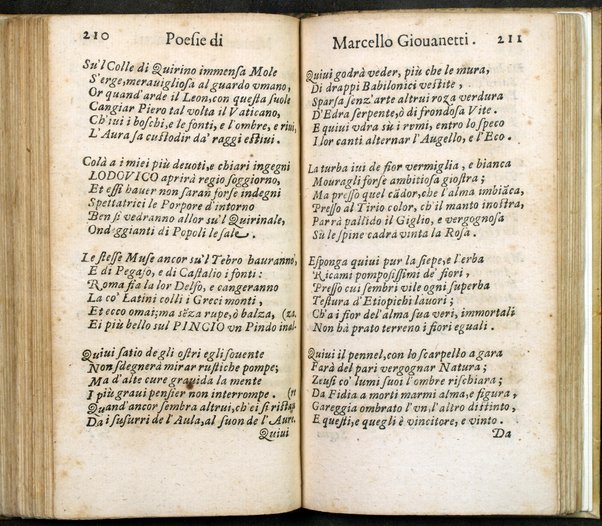 210 Poesie di
Su'l Colle di Quirino immensa Mole
S'erge, merauigliosa al guardo vmano,
Or quand'arde il Leon, con questa suole
Cangiar Piero tal volta il Vaticano,
Ch'iui i boschi, e le fonti, e l'ombre, e riui,
L'Aura sa custodir da' raggi estiui.
Colà a i miei più deuoti, e chiari ingegni
LODOVICO aprirà regio soggiorno,
Et essi hauer non saran forse indegni
Spettatrici le Porpore d'intorno
Ben si vedranno allor su'l Quirinale,
Ondeggianti di Popoli le sale.
Le stesse Muse ancor su'l Tebro hauranno,
E di Pegaso, e di Castalio i fonti:
Roma fia la lor Delfo, e cangeranno
La co' Latini colli i Greci monti,
Et ecco omai; ma sẽza rupe, ò balza, (za.
Ei più bello sul PINCIO vn Pindo inal-
Quiui satio de gli ostri egli souente
Non sdegnerà mirar rustiche pompe;
Ma d'alte cure grauida la mente
I più graui pensier non interrompe. (ri
Quand'ancor sembra altrui, ch'ei si ristap
Da i susurri de l'Aula, al suon de l'Auri.
Quiui
Marcello Giouanetti. 211
Quiui godrà veder, più che le mura,
Di drappi Babilonici vestite,
Sparsa senz'arte altrui roza verdura
D'Edra serpente, ò di frondosa Vite.
E quiui vdra sù i rami, entro lo speco
I lor canti alternar l'Augello, e l'Eco.
La turba iui de fior vermiglia, e bianca
Mouragli forse ambitiosa giostra;
Ma presso quel cãdor, che l'alma imbiãca,
Presso al Tirio color, ch'il manto inostra,
Parrà pallido il Giglio, e vergognosa
Sù le spine cadrà vinta la Rosa.
Esponga quiui pur la siepe, e l'erba
Ricami pomposissimi de' fiori,
Presso cui sembri vile ogni superba
Testura d'Etiopichi lauori;
Ch'a i fior de l'alma sua veri, immortali
Non hà prato terreno i fiori eguali.
Quiui il pennel, con lo scarpello a gara
Farà del pari vergognar Natura;
Zeusi co' lumi suoi l'ombre rischiara;
Da Fidia a morti marmi alma, e figura,
Gareggia ombrato l'vn, l'altro distinto,
E questi, e quegli è vincitore, e vinto.
Da